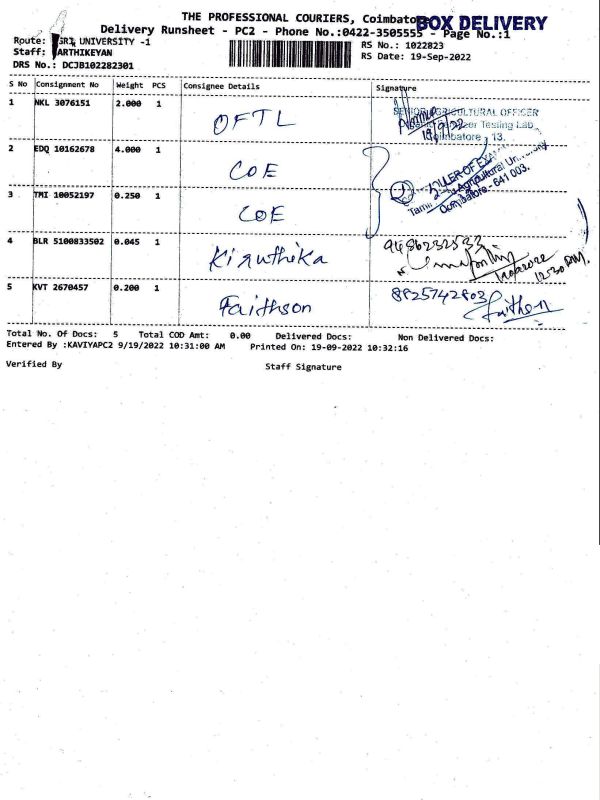 THE PROFESSIONAL COURIERS, Coimbatore
BOX DELIVERY
Delivery Runsheet - PC2 - Phone No.:0422-3505555 - Page No.:1
Route: SRI, UNIVERSITY -1
RS No.: 1022823
Staff: ARTHIKEYAN
RS Date: 19-Sep-2022
DRS No.: DCJB102282301
S No Consignment No Weight PCS Consignee Details Signature
1 NKL 3076151 2.000 1 OFTL
SENIOR AGRICULTURAL OFFICER
Testing Lab
Coimbatore - 13.
2 EDQ 10162678 4.000 1 COE
3 TMI 10052197 0.250 1 COE
Agricultural University
Coimbatore - 641 003.
4 BLR 5100833502 0.045 1 Kiruthika 9486232533
12-30 PM.
5 KVT 2670457 0.200 1 Faithson 8825742803 Faithson
Total No. Of Docs: 5 Total COD Amt: 0.00 Delivered Docs: Non Delivered Docs:
Entered By :KAVIYAPC2 9/19/2022 10:31:00 AM Printed On: 19-09-2022 10:32:16
Verified By Staff Signature